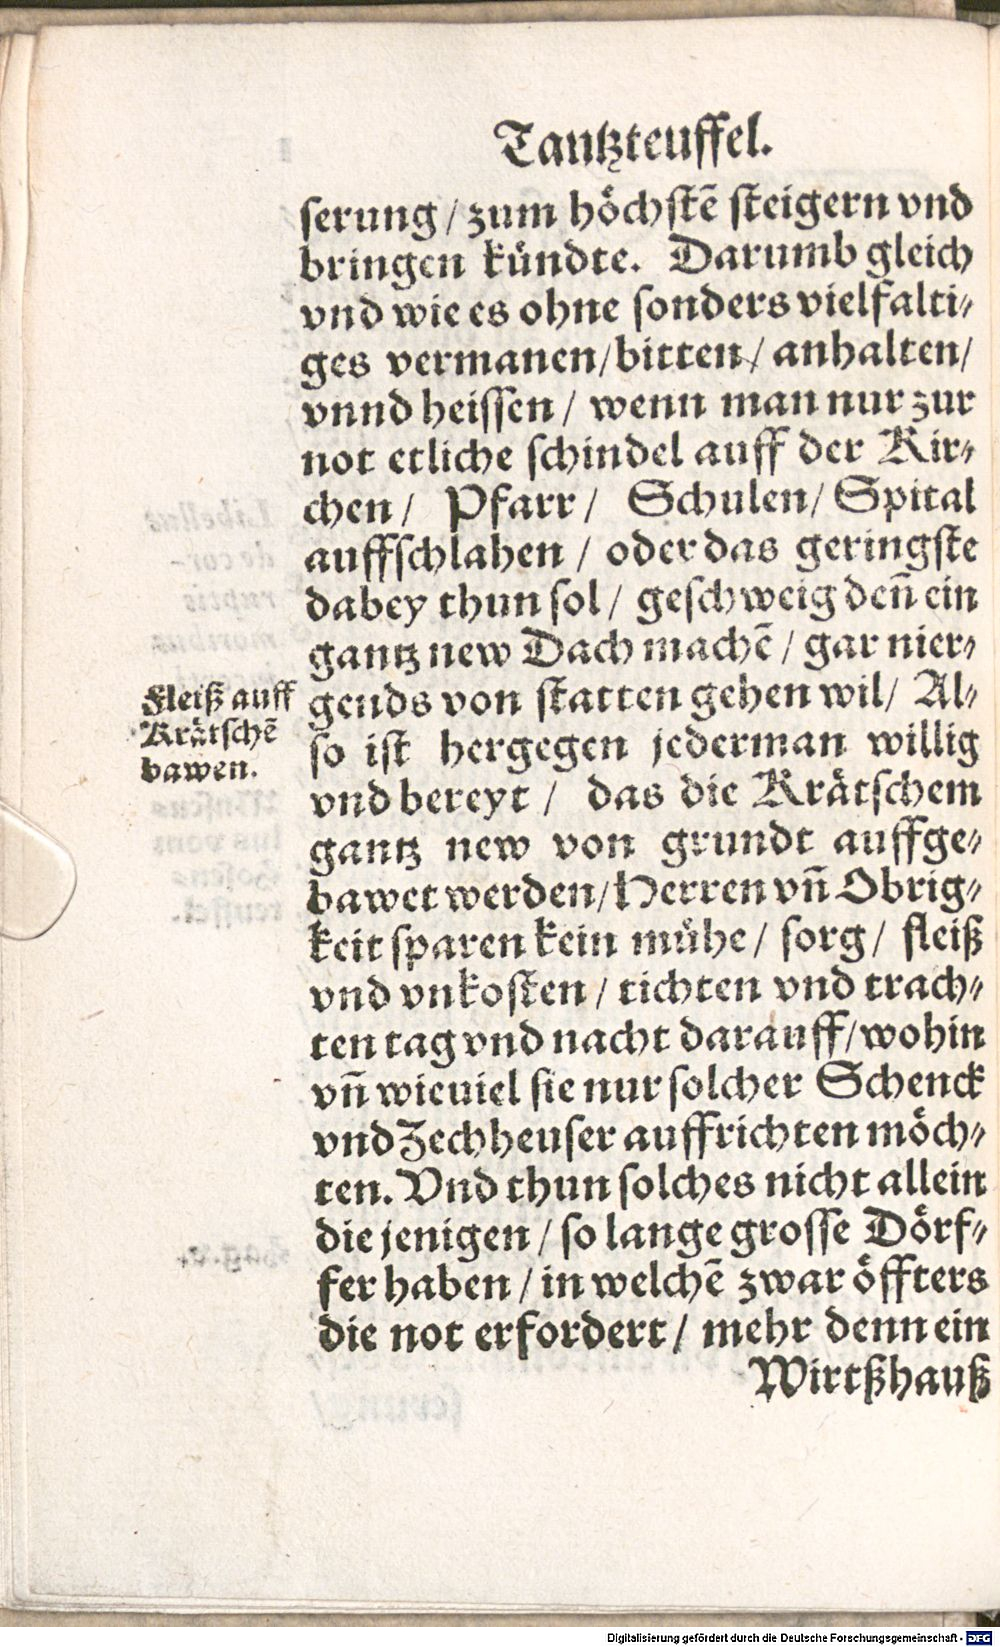 Tantzteuffel.
serung / zum höchstẽ steigern vnd
bringen kündte. Darumb gleich
vnd wie es ohne sonders vielfalti⸗
ges vermanen / bitten / anhalten /
vnnd heissen / wenn man nur zur
not etliche schindel auff der Kir⸗
chen / Pfarr / Schulen / Spital
auffschlahen / oder das geringste
dabey thun sol / geschweig deñ ein
gantz new Dach machẽ / gar nier⸗
gends von statten gehen wil / Al⸗
so ist hergegen jederman willig
vnd bereyt / das die Krätschem
gantz new von grundt auffge⸗
bawet werden / Herren vñ Obrig⸗
keit sparen kein mühe / sorg / fleiß
vnd vnkosten / tichten vnd trach⸗
ten tag vnd nacht darauff / wohin
vñ wieuiel sie nur solcher Schenck
vnd Zechheuser auffrichten möch⸗
ten. Vnd thun solches nicht allein
die jenigen / so lange grosse Dörf⸗
fer haben / in welchẽ zwar öffters
die not erfordert / mehr denn ein
Wirtßhauß
Fleiß auff
Krätschẽ
bawen.
Digitalisierung gefördert durch die Deutsche Forschungsgemeinschaft - DFG